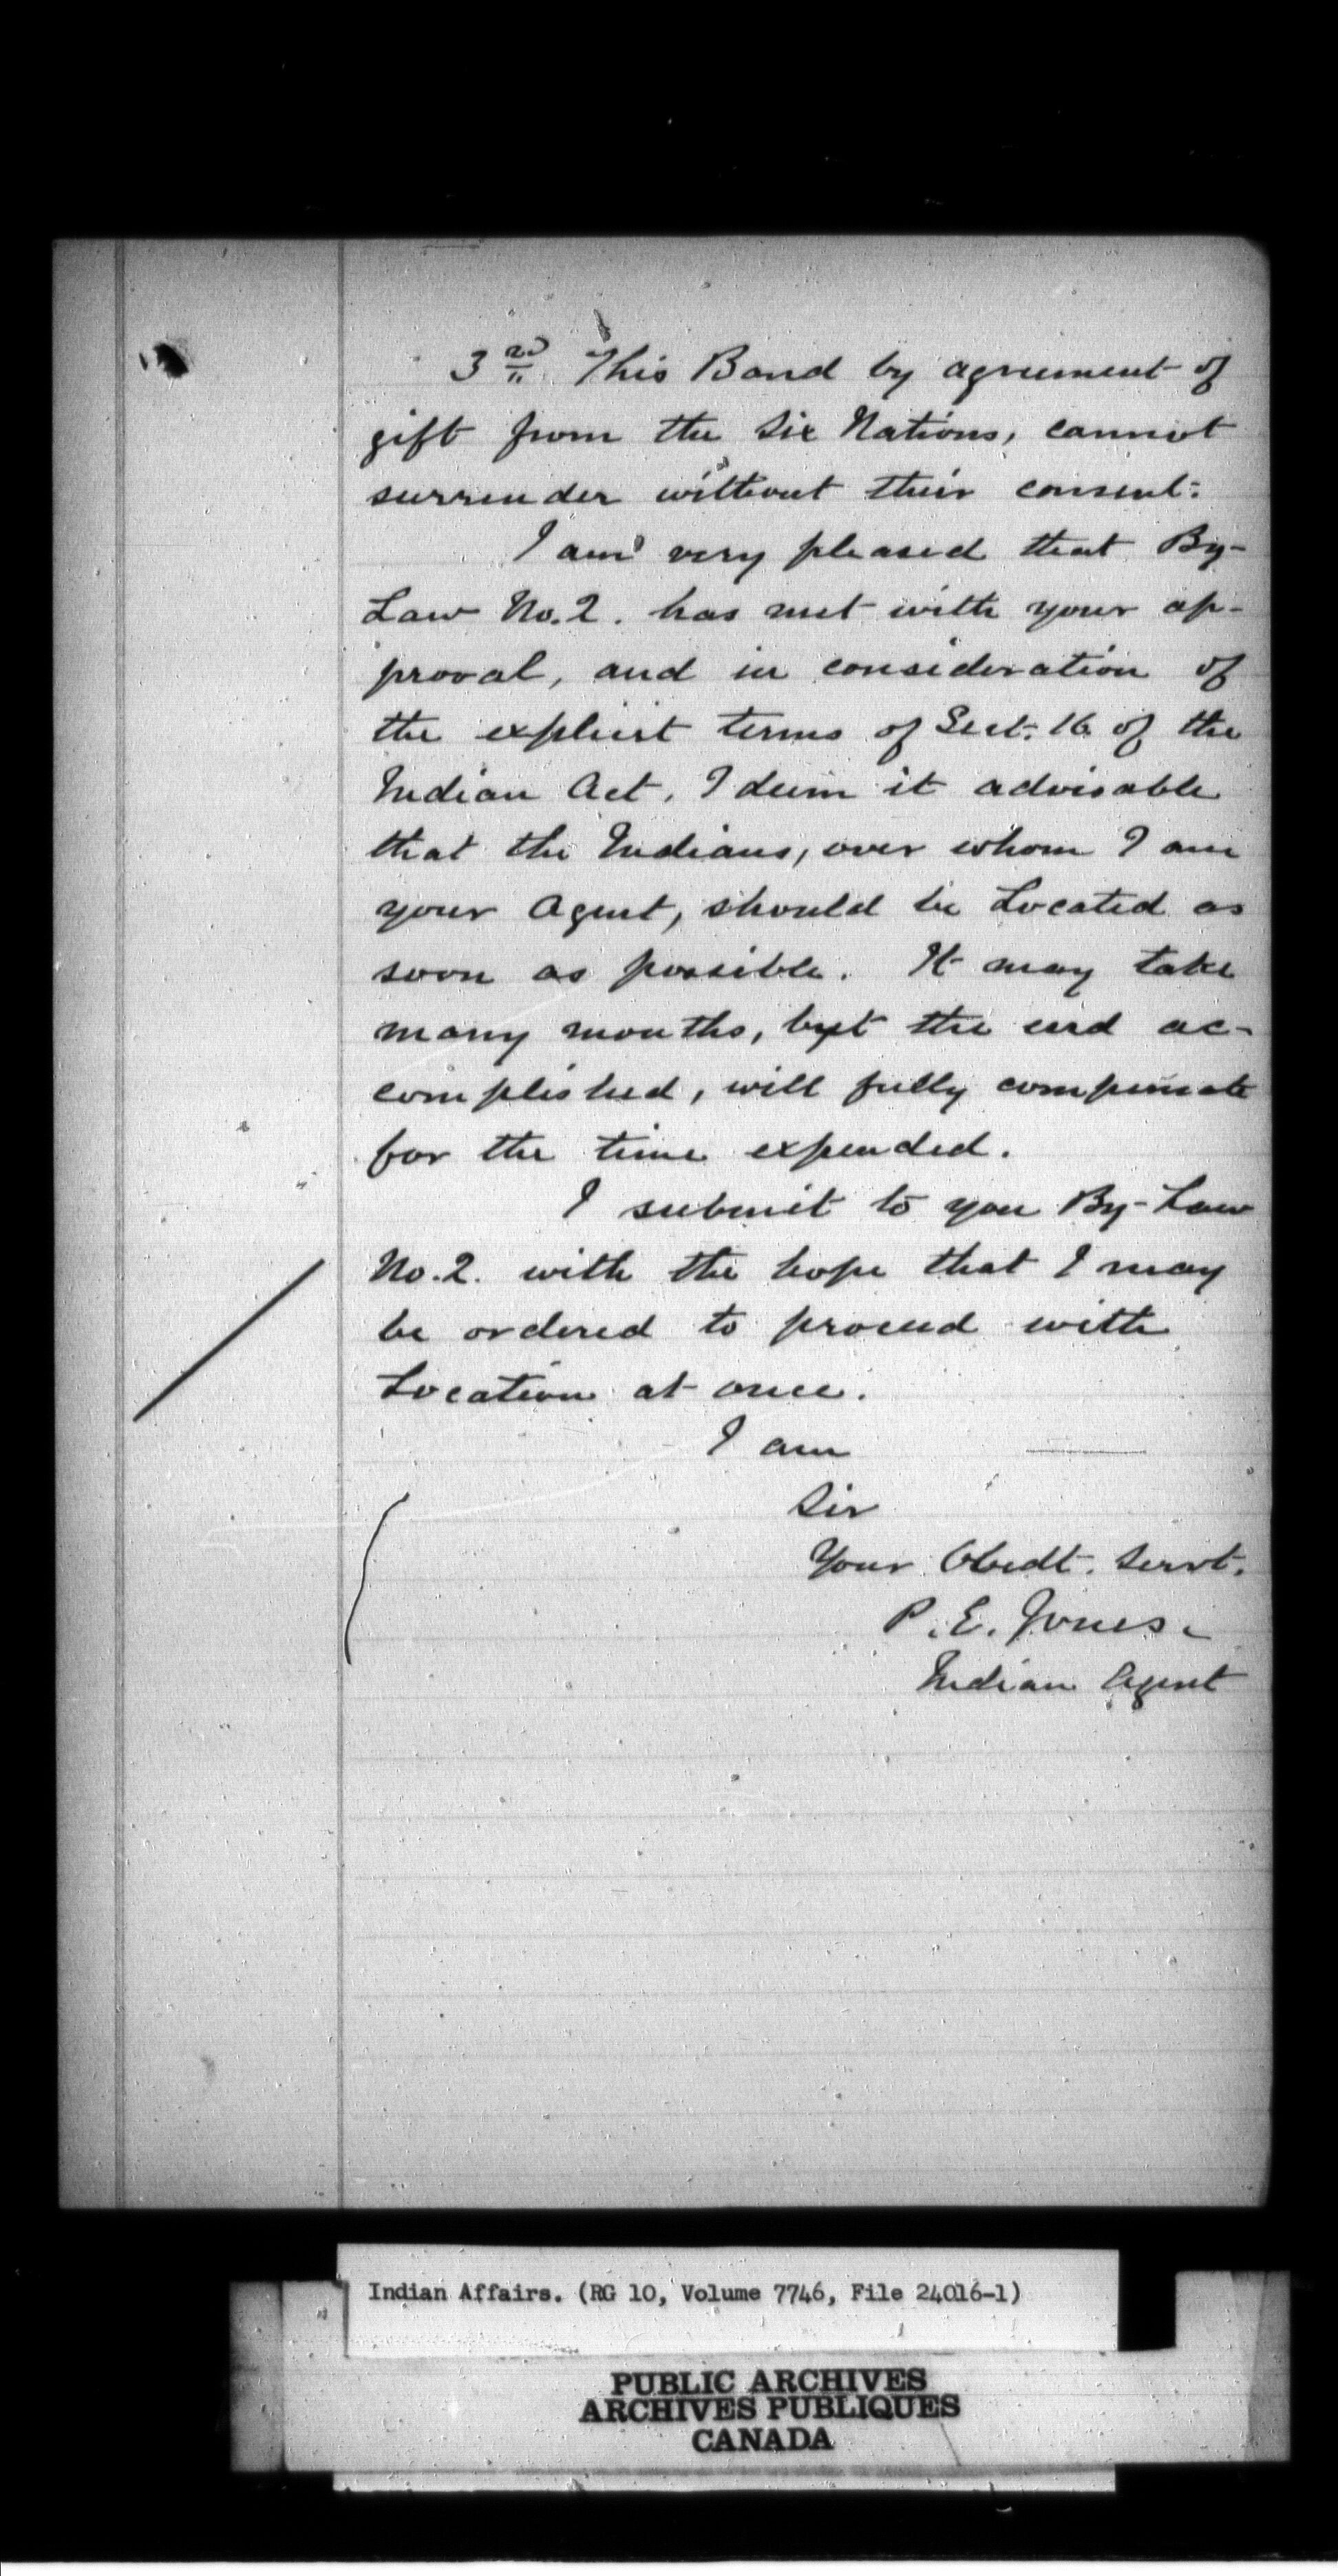 3rd This Band by agreement of
gift from the Six Nations, cannot
surrender without their consent.
I am very pleased that By-
Law No. 2. has met with your ap-
proval, and in consideration of
the explicit terms of Sect. 16 of the
Indian Act, I deem it advisable
that the Indians, over whom I am
your Agent, should be Located as
soon as possible. It may take
many months, but the end ac-
complished, will fully compensate
for the time expended.
I submit to you By-Law
No. 2. with the hope that I may
be ordered to proceed with
Location at once.
I am
Sir
Your Obedt. Servt.
P. E. Jones.
Indian Agent
Indian Affairs. (RG 10, Volume 7746, File 24016-1)
PUBLIC ARCHIVES
ARCHIVES PUBLIQUES
CANADA